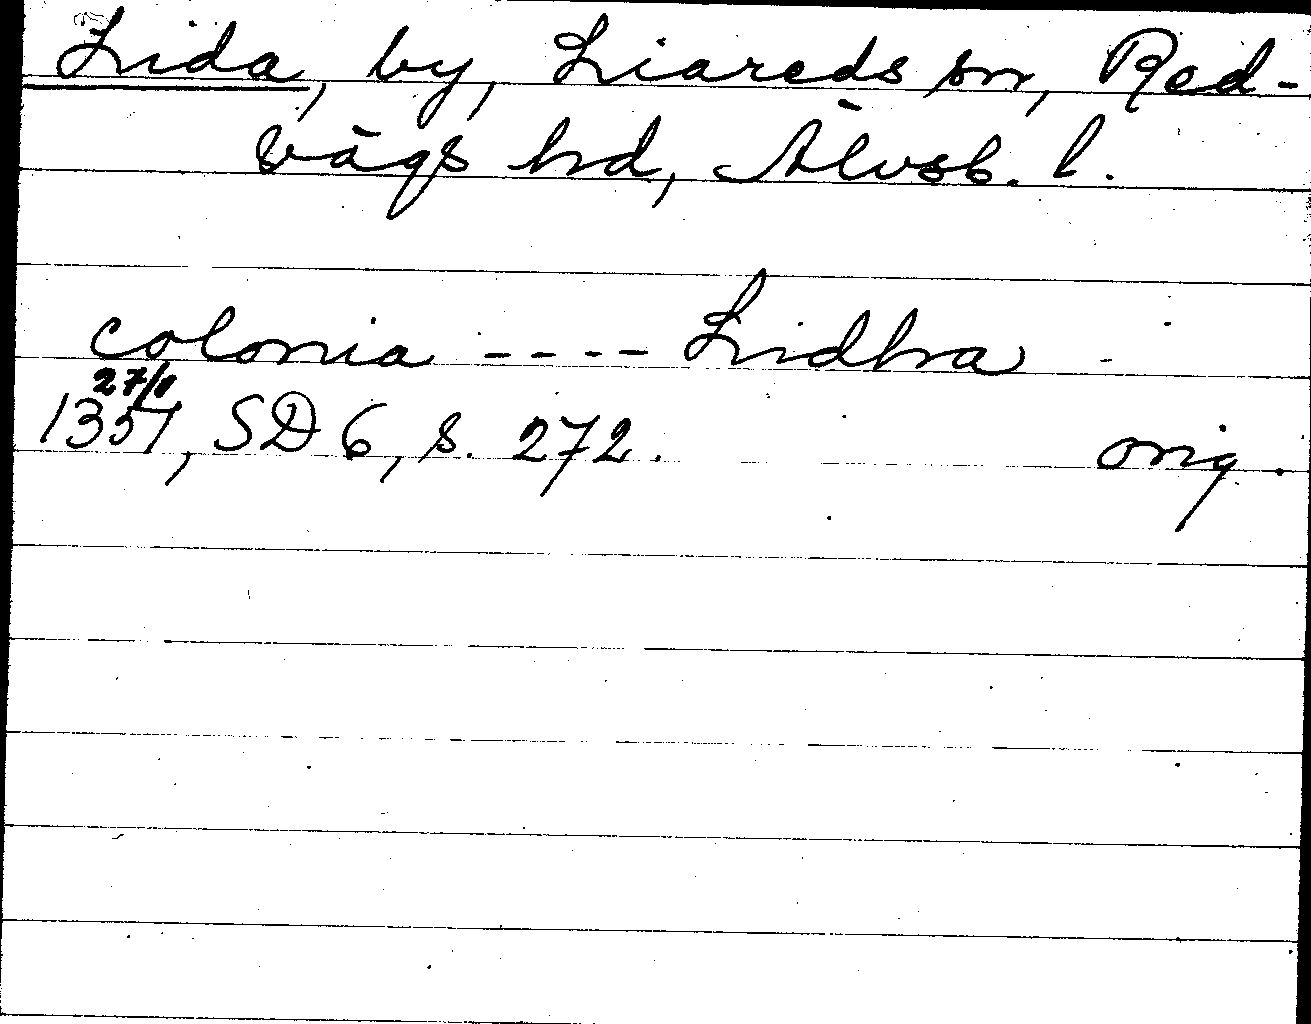 Lida, by, Liareds sn, Red-
vägs hd, Älvsb. l.
colonia ---- Lidhra
27/1
1357, SD 6, s. 272. orig.